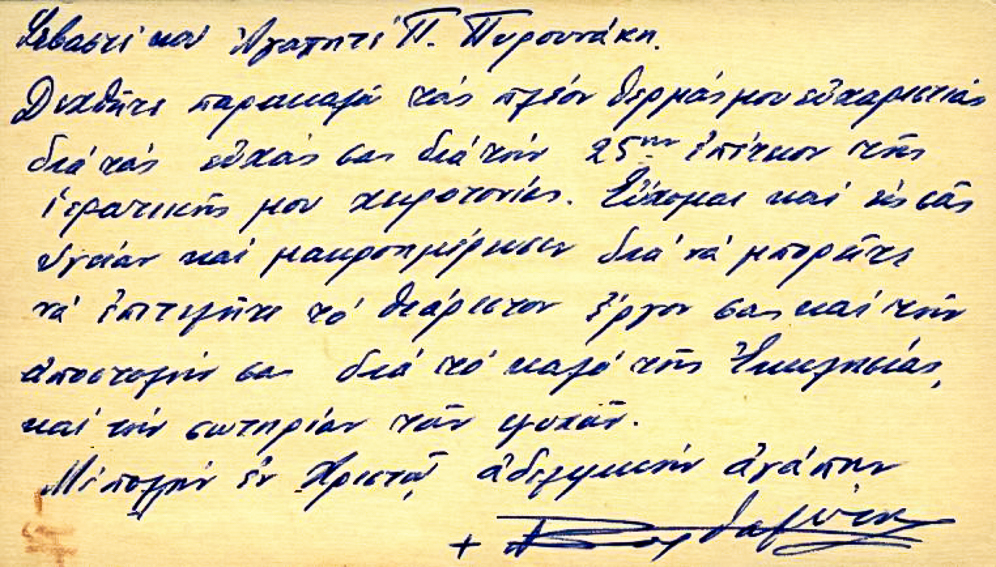 Σεβαστέ καί Ἀγαπητέ Π. Πυρουνάκη.
Δεχθῆτε παρακαλῶ τάς πλέον θερμάς μου εὐχαριστίας
διά τάς εὐχάς σας διά τήν 25ην ἐπέτειον τῆς
ἱερατικῆς μου χειροτονίας. Εὔχομαι καί εἰς σᾶς
ὑγείαν καί μακροημέρευσιν διά νά μπορῆτε
νά ἐπιτελῆτε τό θεάρεστον ἔργον σας καί τήν
ἀποστολήν σας διά τό καλό τῆς Ἐκκλησίας,
καί τήν σωτηρίαν τῶν ψυχῶν.
Μέ πολλήν ἐν Χριστῷ ἀδελφικήν ἀγάπην
+